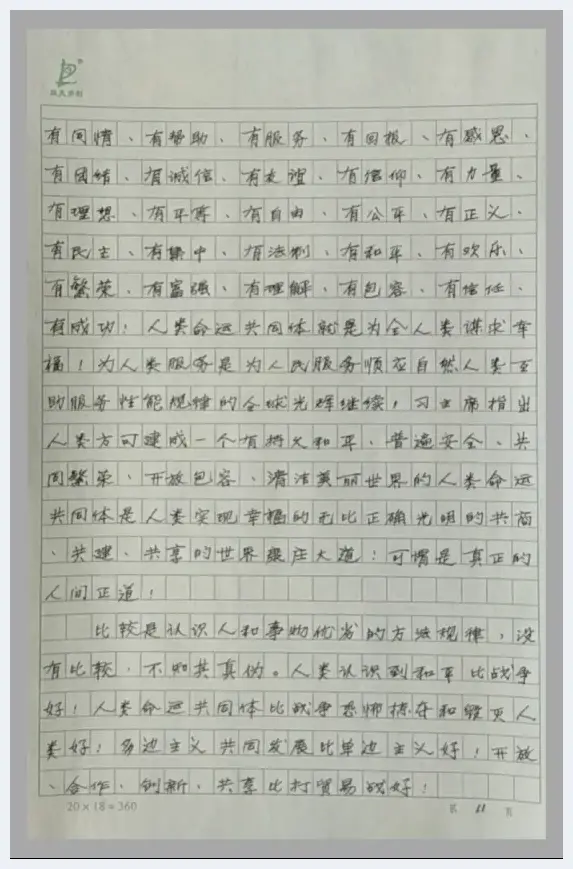 有同情、有帮助、有服务、有回报、有感恩、
有团结、有诚信、有友谊、有信仰、有力量、
有理想、有平等、有自由、有公平、有正义、
有民主、有集中、有法制、有和平、有欢乐、
有繁荣、有富强、有理解、有包容、有信任、
有成功！人类命运共同体就是为全人类谋求幸
福！为人类服务是为人民服务顺应自然人类互
助服务性能规律的全球光辉继续，习主席指出
人类方可建成一个有持久和平、普遍安全、共
同繁荣、开放包容、清洁美丽世界的人类命运
共同体是人类实现幸福的无比正确光明的共商
、共建、共享的世界康庄大道！可谓是真正的
人间正道！
比较是认识人和事物优劣的方法规律，没
有比较，不知其真伪。人类认识到和平比战争
好！人类命运共同体比战争恐怖掠夺和毁灭人
类好！多边主义共同发展比单边主义好！开放
、合作、创新、共享比打贸易战好！
20×18=360
第 11 页